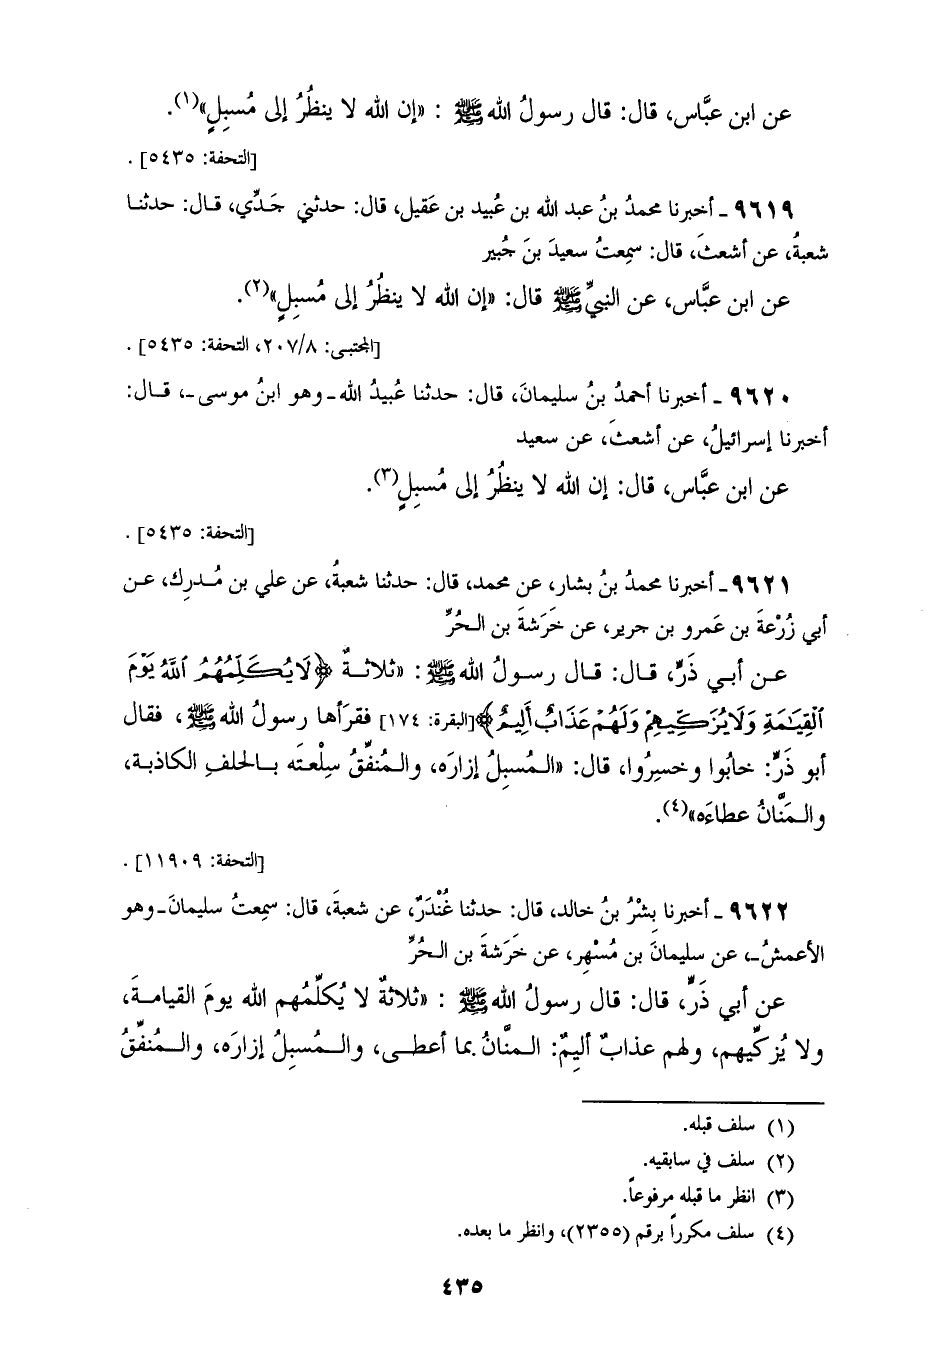 عن ابن عبَّاس، قال: قال رسولُ الله ﷺ : «إن الله لا ينظُرُ إلى مُسبِلٍ»(١).
[التحفة: ٥٤٣٥] .
٩٦١٩ ـ أخبرنا محمدُ بنُ عبد الله بن عُبيد بن عَقيل، قال: حدثني جَدِّي، قـال: حدثنـا
شعبةُ، عن أشعثَ، قال: سمِعتُ سعيدَ بنَ جُبير
عن ابن عبَّاس، عن النبيِّ ﷺ قال: «إن الله لا ينظُرُ إلى مُسبِلٍ»(٢).
[المجتبى: ٢٠٧/٨، التحفة: ٥٤٣٥] .
٩٦٢٠ ـ أخبرنا أحمدُ بنُ سليمانَ، قال: حدثنا عُبيدُ الله ـ وهو ابنُ موسى ـ، قـال:
أخبرنا إسرائيلُ، عن أشعثَ، عن سعيد
عن ابن عبَّاس، قال: إن الله لا ينظُرُ إلى مُسبِلٍ(٣).
[التحفة: ٥٤٣٥] .
٩٦٢١ ـ أخبرنا محمدُ بنُ بشار، عن محمد، قال: حدثنا شعبةُ، عن علي بن مُـدرِك، عـن
أبي زُرْعةَ بن عَمرو بن جرير، عن خَرَشةَ بن الـحُرِّ
عـن أبـي ذَرٍّ، قـال: قـال رسـولُ الله ﷺ : «ثلاثـةٌ ﴿لَا يُكَلِّمُهُمُ ٱللَّهُ يَوْمَ
ٱلْقِيَـٰمَةِ وَلَا يُزَكِّيهِمْ وَلَهُمْ عَذَابٌ أَلِيمٌ﴾[البقرة: ١٧٤] فقرَأها رسولُ الله ﷺ ، فقال
أبو ذَرٍّ: خابُوا وخسِرُوا، قال: «الـمُسبِلُ إزارَه، والـمُنفِّقُ سِلْعتَه بـالحَلفِ الكاذبـة،
والـمَنَّانُ عطاءَه»(٤).
[التحفة: ١١٩٠٩] .
٩٦٢٢ ـ أخبرنا بِشْرُ بنُ خالد، قال: حدثنا غُنْدَرٌ، عن شعبةَ، قال: سمِعتُ سليمانَ ـ وهو
الأعمشُ ـ، عن سليمانَ بن مُسْهِر، عن خَرَشةَ بن الـحُرِّ
عن أبي ذَرٍّ، قال: قال رسولُ الله ﷺ : «ثلاثةٌ لا يُكلِّمُهم الله يومَ القيامـة،
ولا يُزكِّيهم، ولهم عذابٌ أليمٌ: الـمنَّانُ بما أعطـى، والــمُسبِلُ إزارَه، والــمُنفِّقُ
(١) سلف قبله.
(٢) سلف في سابقيه.
(٣) انظر ما قبله مرفوعاً.
(٤) سلف مكرراً برقم (٢٣٥٥)، وانظر ما بعده.
٤٣٥